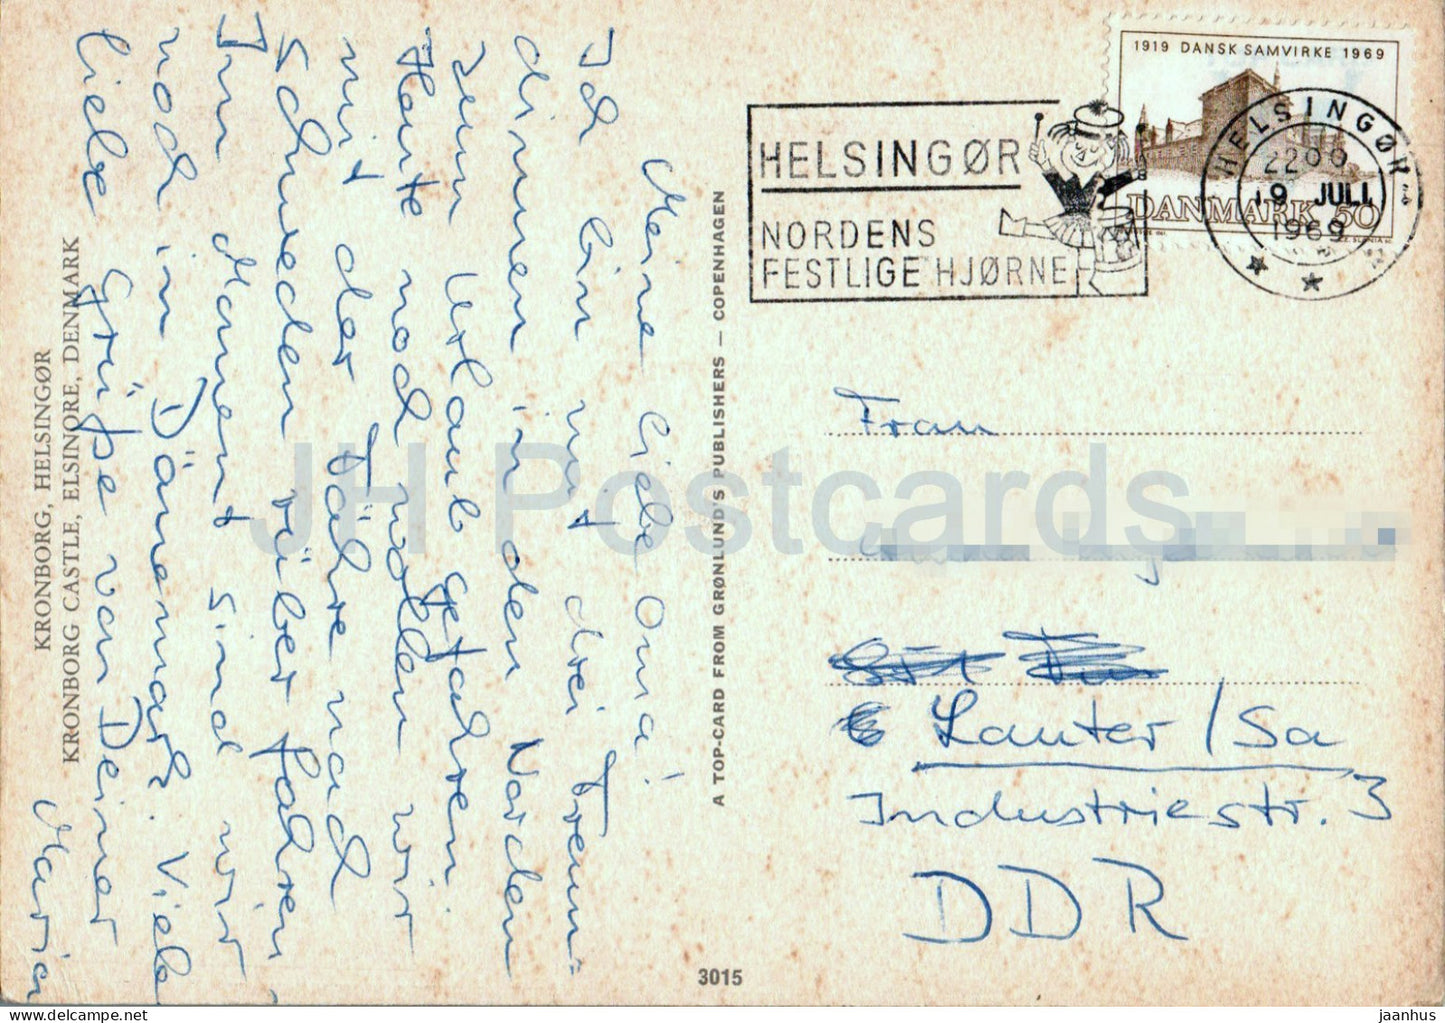 Meine liebe Oma!
Ich bin mit drei Freun-
dinnen in den Norden
zum Urlaub gefahren.
Heute noch wollen wir
mit der Fähre nach
Schweden rüber fahren
Im Moment sind wir
noch in Dänemark. Viele
liebe Grüße von Deiner
Maria
KRONBORG, HELSINGØR
KRONBORG CASTLE, ELSINORE, DENMARK
A TOP-CARD FROM GRØNLUND'S PUBLISHERS — COPENHAGEN
3015
1919 DANSK SAMVIRKE 1969
DANMARK 50
HELSINGØR
2200
19 JULI
1969
HELSINGØR
NORDENS
FESTLIGE HJØRNE
Frau
Lauter / Sa
Industriestr. 3
DDR
JH Postcards
jaanhus